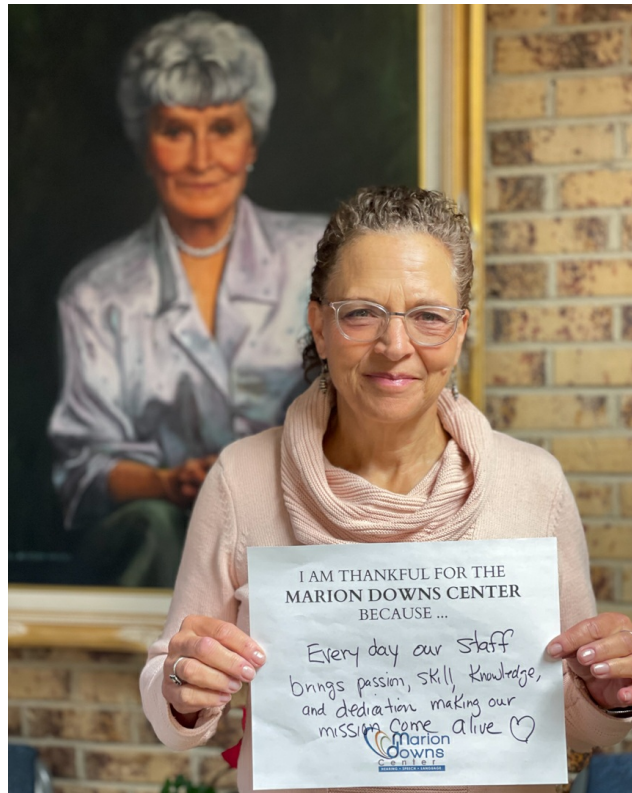 I AM THANKFUL FOR THE
MARION DOWNS CENTER
BECAUSE ...
Every day our staff
brings passion, skill, knowledge,
and dedication making our
mission come alive ♡
Marion
Downs
Center
HEARING • SPEECH • LANGUAGE